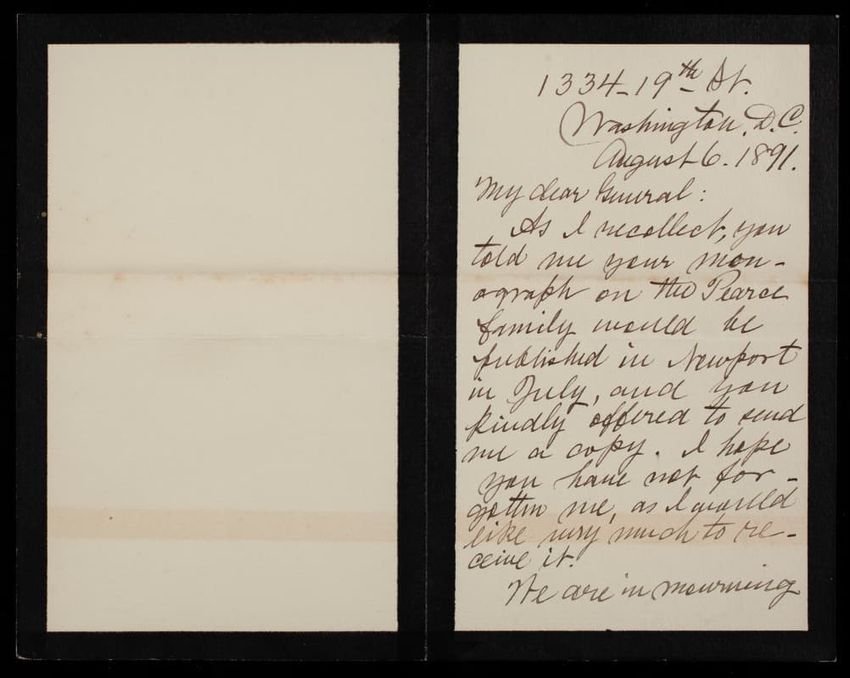 1334-19th St.
Washington, D.C.
August 6. 1891.
My dear General:
As I recollect, you
told me your mon-
ograph on the Pearce
family would be
published in Newport
in July, and you
kindly offered to send
me a copy. I hope
you have not for-
gotten me, as I would
like very much to re-
ceive it.
We are in mourning